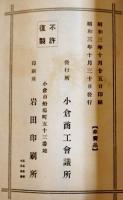 昭和三年十月十五日印刷
昭和三年十月三十日發行
【非賣品】
不許
復製
發行所
小倉商工會議所
小倉市船場町五十三番地
印刷所
岩田印刷所